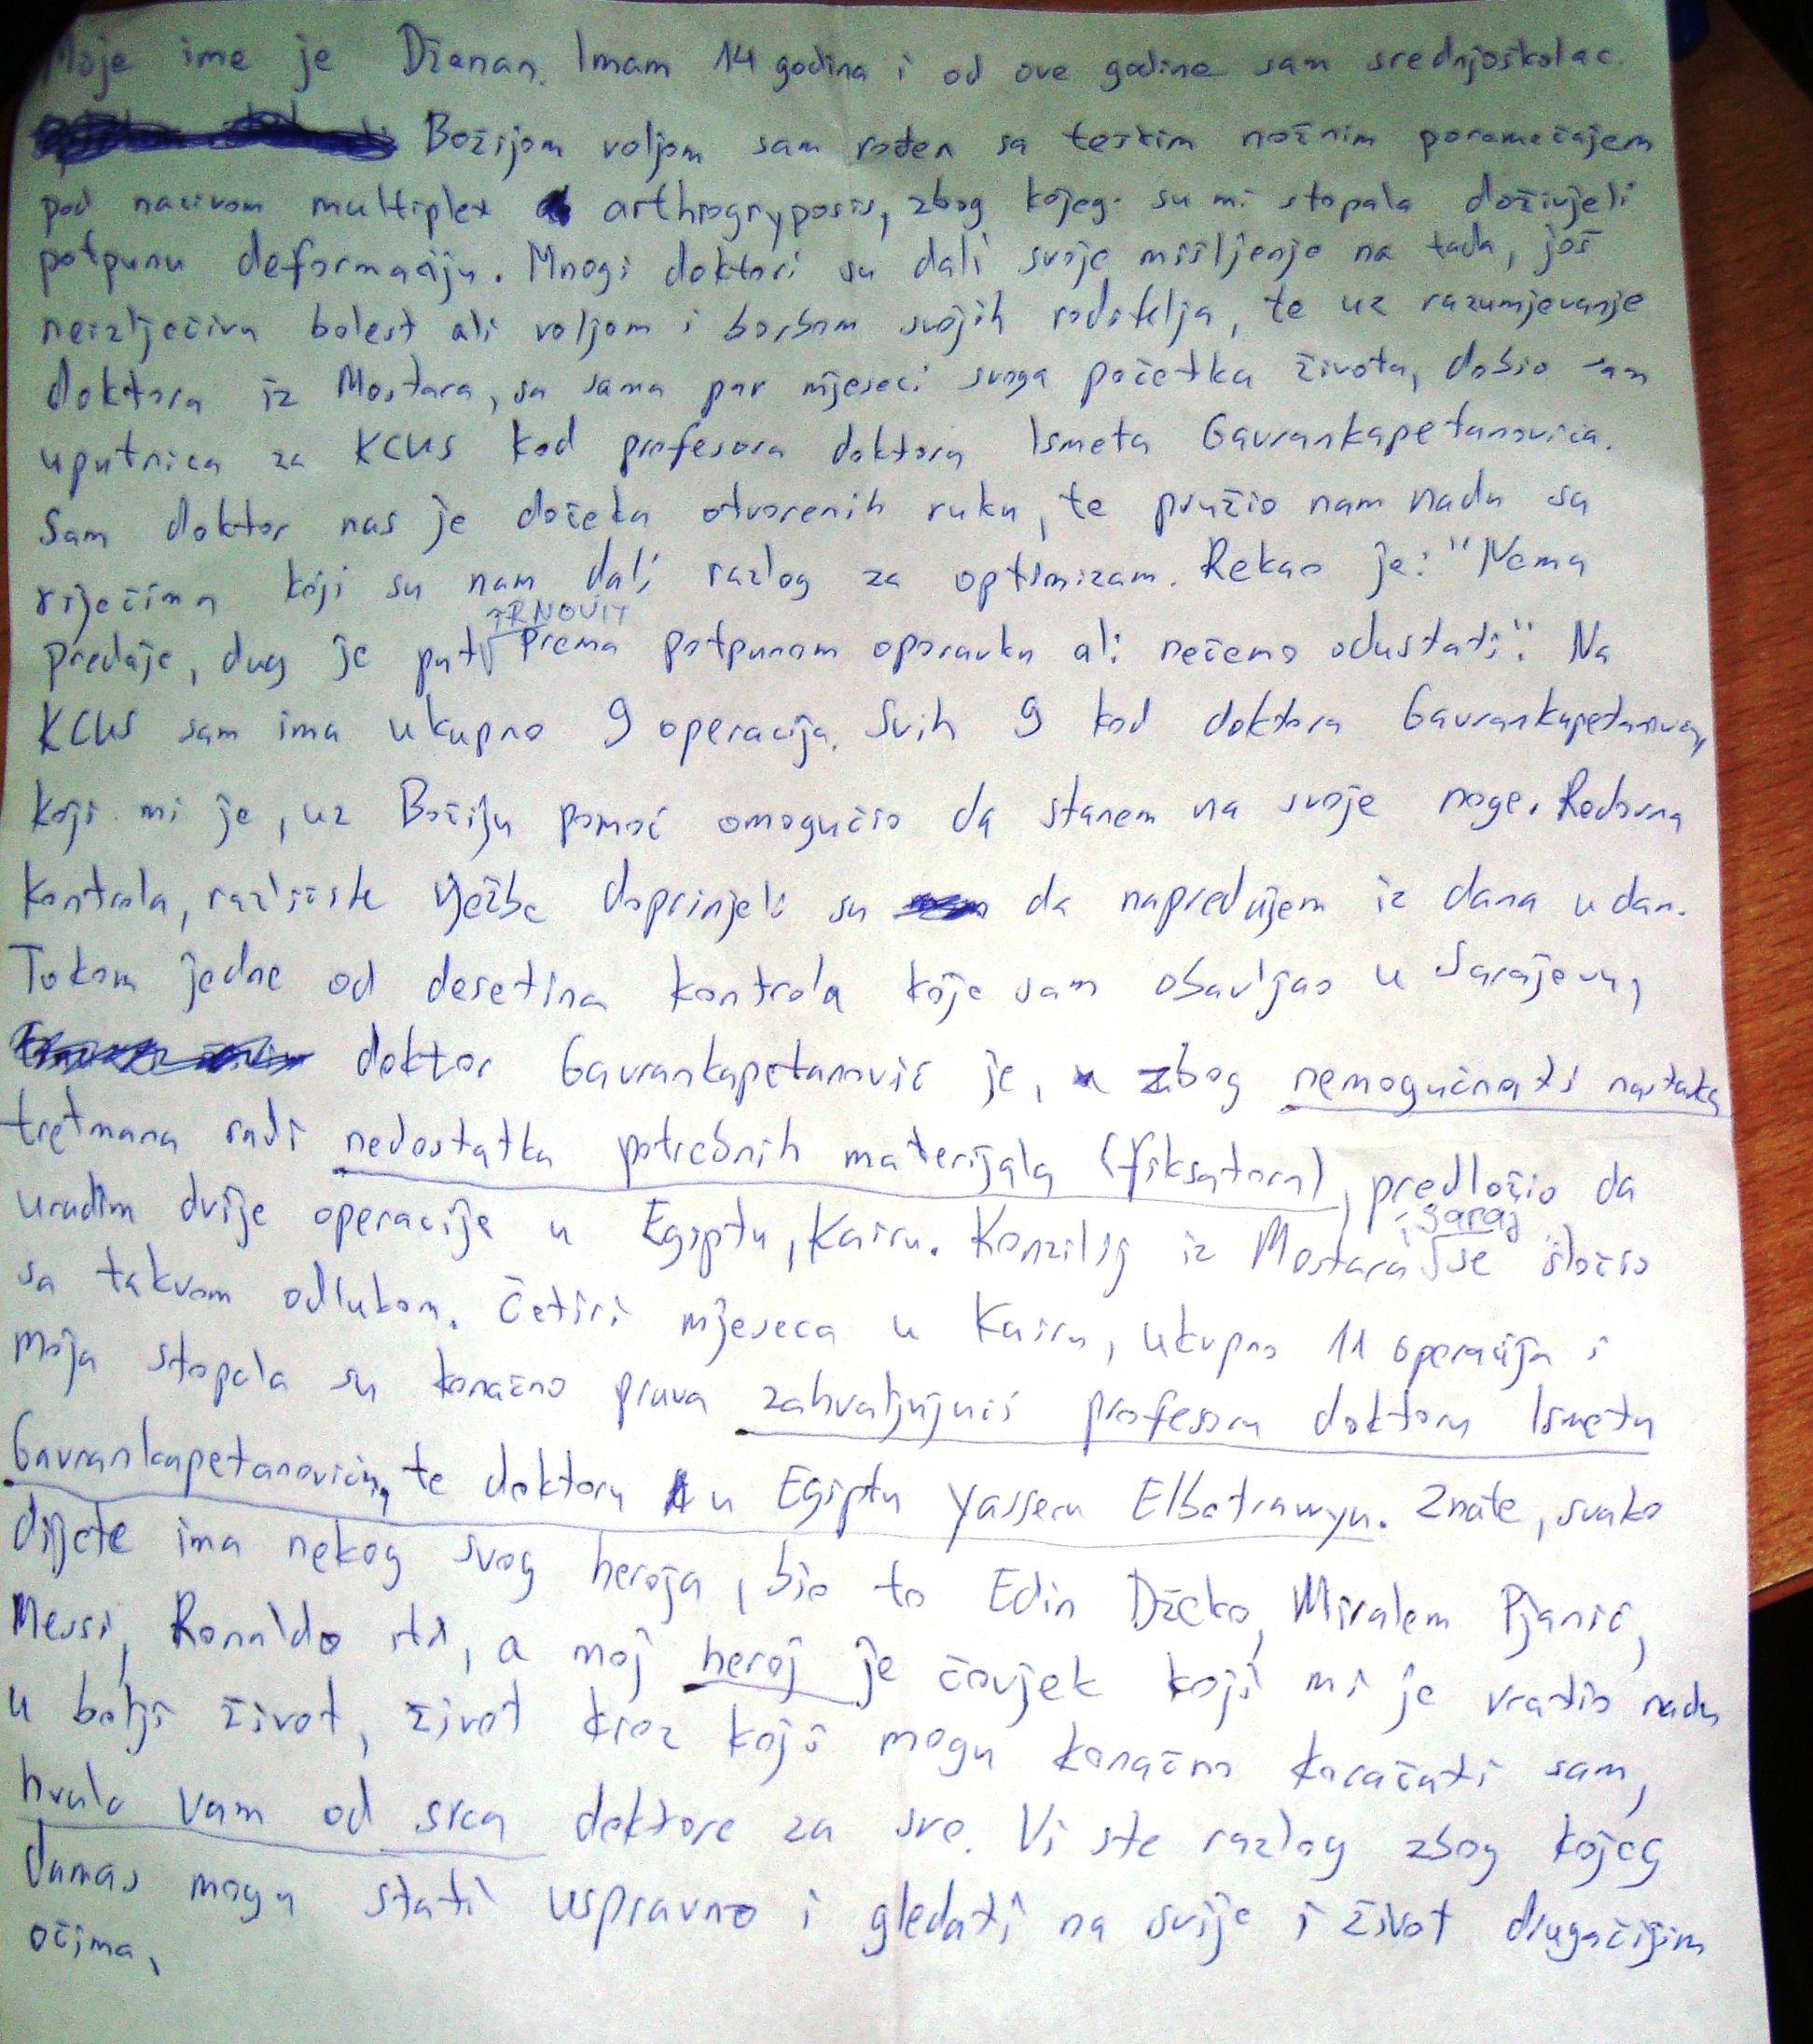 Moje ime je Dženan. Imam 14 godina i od ove godine sam srednjoškolac.
Božijom voljom sam rođen sa teškim nožnim poremečajem
pod nazivom multiplex arthrogryposis, zbog kojeg su mi stopala doživjeli
potpunu deformaciju. Mnogi doktori su dali svoje mišljenje na tada, još
neizlječivu bolest ali voljom i borbom svojih roditelja, te uz razumjevanje
doktora iz Mostara, sa samo par mjeseci svoga početka života, dobio sam
uputnicu za KCUS kod profesora doktora Ismeta Gavrankapetanovića.
Sam doktor nas je dočeka otvorenih ruku, te pružio nam nadu sa
riječima koji su nam dali razlog za optimizam. Rekao je: "Nema
TRNOVIT
predaje, dug je put prema potpunom oporavku ali nečemo odustati". Na
KCUS sam ima ukupno 9 operacija. Svih 9 kod doktora Gavrankapetanovića,
koji mi je, uz Božiju pomoć omogučio da stanem na svoje noge. Redovna
kontrola, različite vježbe doprinjeli su da napredujem iz dana u dan.
Tokom jedne od desetina kontrola koje sam obavljao u Sarajevu,
doktor Gavrankapetanović je, zbog nemogučnosti nastavka
tretmana radi nedostatka potrebnih materijala (fiksatora), predložio da
uradim dvije operacije u Egiptu, Kairu. Konzilij iz Mostara i Saraj se složio
sa takvom odlukom. Četiri mjeseca u Kairu, ukupno 11 operacija i
moja stopala su konačno prava zahvaljujući profesoru doktoru Ismetu
Gavrankapetanoviću, te doktoru u Egiptu Yasseru Elbatrawyu. Znate, svako
dijete ima nekog svog heroja, bio to Edin Džeko, Miralem Pjanić,
Messi, Ronaldo itd, a moj heroj je čovjek koji mi je vratio nadu
u bolji život, život kroz koji mogu konačno koračati sam,
hvala vam od srca doktore za sve. Vi ste razlog zbog kojeg
danas mogu stati uspravno i gledati na svije i život drugačijim
očima,